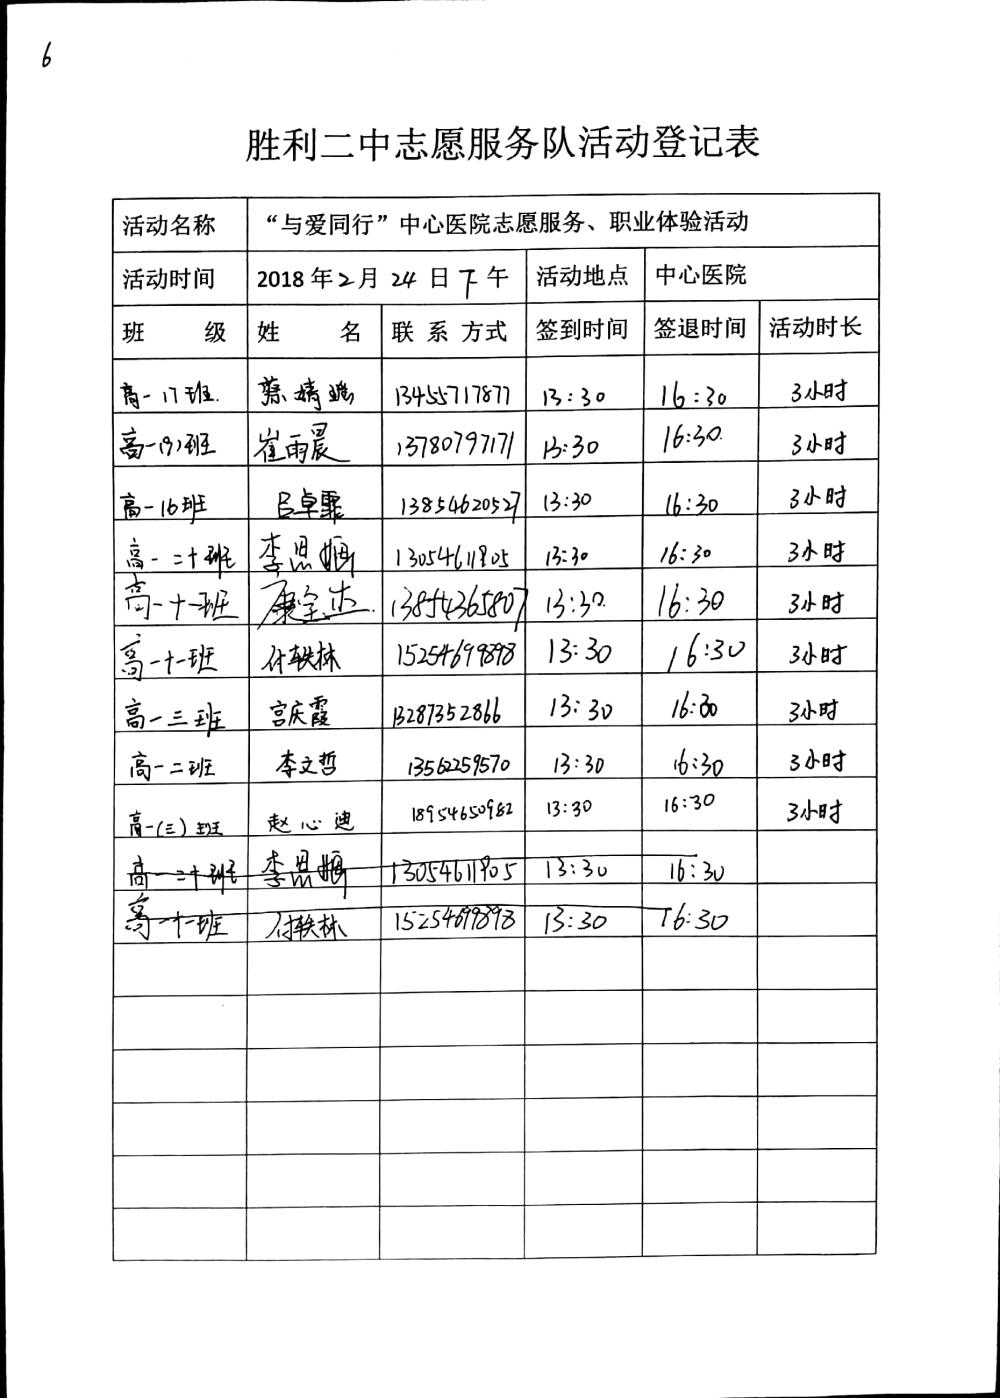 6
胜利二中志愿服务队活动登记表
活动名称 “与爱同行”中心医院志愿服务、职业体验活动
活动时间 2018年2月24日下午 活动地点 中心医院
班 级 姓 名 联系方式 签到时间 签退时间 活动时长
高一17班. 蔡婧 13455717877 13:30 16:30 3小时
高一(9)班 崔雨晨 13780797171 13:30 16:30. 3小时
高一16班 吕卓霏 13854620527 13:30 16:30 3小时
高一二十班 李思 13054611805 13:30 16:30 3小时
高一十一班 康宝杰. 13854365807 13:30. 16:30 3小时
高一十一班 付轶林 15254699898 13:30 16:30 3小时
高一三班 宫庆霞 13287352866 13:30 16:30 3小时
高一二班 李文哲 13562259570 13:30 16:30 3小时
高一(三)班 赵心迪 18954650982 13:30 16:30 3小时
高一二十班 李思 13054611805 13:30 16:30
高一十一班 付轶林 15254699898 13:30 16:30